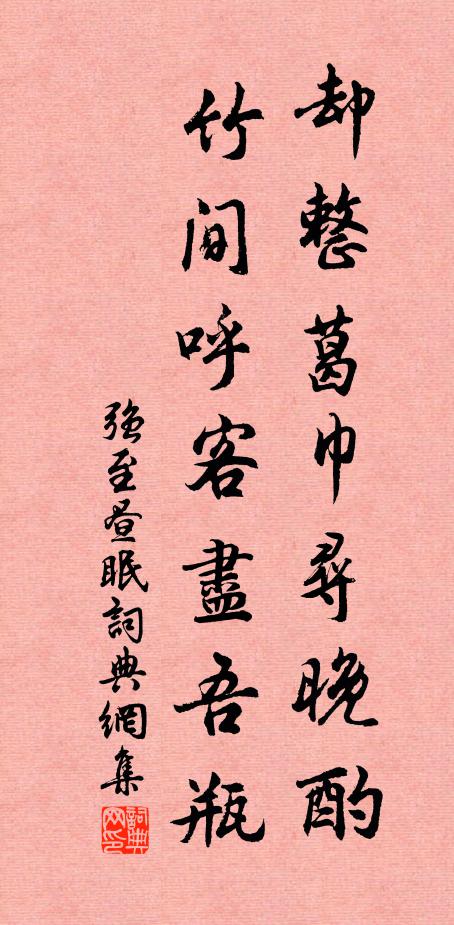 却整葛巾尋晚酌
竹間呼客盡吾瓶
强至昼眠詞典網集
詞典网印